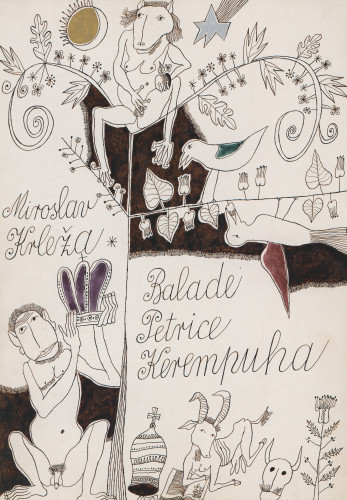 Miroslav
Krleža *
Balade
Petrice
Kerempuha